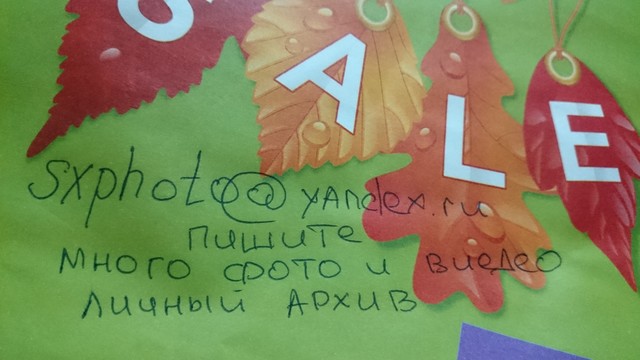 SALE
sxphoto@yandex.ru
пишите
много фото и видео
личный архив